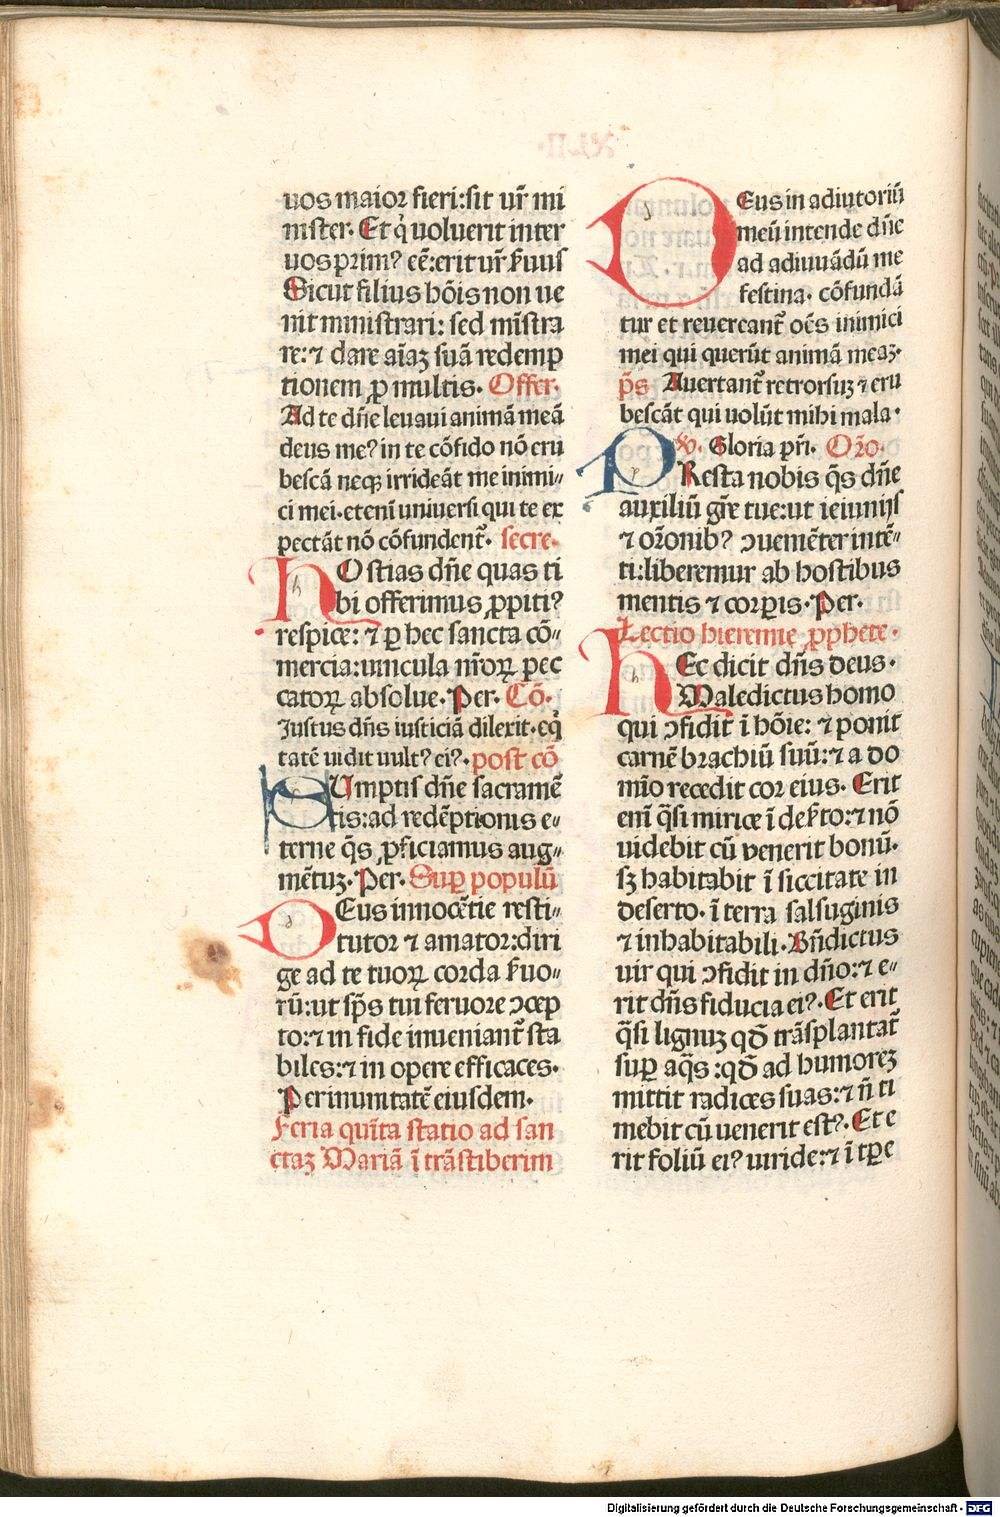 uos maior fieri:sit ur̃ mi
nister. Et q̇ uoluerit inter
uos prim⁹ eẽ:erit ur̃ ẜuus
Sicut filius hõis non ue
nit ministrari: sed mĩstra
re:⁊ dare aĩaʒ suã redemp
tionem ꝓ multis. Offer.
Ad te dñe leuaui animã meã
deus me⁹ in te cõfido nõ eru
bescã neqꝫ irrideãt me inimi⸗
ci mei.eteni᷑ uniuersi qui te ex
pectãt nõ cõfundent᷑. secre.
HOstias dñe quas ti
bi offerimus ꝓpiti⁹
respice: ⁊ ꝑ hec sancta cõ⸗
mercia:uincula nr̃oꝝ pec
catoꝝ absolue. Per. Cõ.
Justus dñs iusticiã dilexit.eq̇
tatẽ uidit uult⁹ ei⁹. post cõ
SUmptis dñe sacramẽ
tis:ad redẽptionis e⸗
terne q̃s ꝓficiamus aug⸗
mẽtuʒ. Per. Suꝑ populũ
DEus innocẽtie resti⸗
tutor ⁊ amator:diri
ge ad te tuoꝝ corda ẜuo⸗
rũ:ut sp̃s tui feruore ↄcep
to:⁊ in fide inueniant᷑ sta
biles:⁊ in opere efficaces.
Per inunitatẽ eiusdem.
Feria quĩta statio ad san
ctaʒ Mariã ĩ trãstiberim
DEus in adiutoriũ
meũ intende dñe
ad adiuuãdũ me
festina. cõfundã
tur et reuereant᷑ oẽs inimici
mei qui querũt animã meaʒ.
p̃s Auertant᷑ retrorsuʒ ⁊ eru
bescãt qui uolũt mihi mala.
℣. Gloria pr̃i. Oro̅.
PResta nobis q̃s dñe
auxiliũ gr̃e tue:ut ieiunijs
⁊ or̃onib⁹ ↄueniẽter intẽ⸗
ti:liberemur ab hostibus
mentis ⁊ corꝑis. Per.
Lectio hieremie ꝓphete.
HEc dicit dñs deus.
Maledictus homo
qui ↄfidit ĩ hõie: ⁊ ponit
carnẽ brachiũ suũ:⁊ a do
mĩo recedit cor eius. Erit
enĩ q̃si mirice ĩ deẜto:⁊ nõ
uidebit cũ venerit bonũ.
sꝫ habitabit ĩ siccitate in
deserto. ĩ terra salsuginis
⁊ inhabitabili. Bñdictus
uir qui ↄfidit in dño:⁊ e⸗
rit dñs fiducia ei⁹. Et erit
q̃si lignuʒ qd̃ trãsplantat᷑
suꝑ aq̃s:qd̃ ad humoreʒ
mittit radices suas:⁊ ñ ti
mebit cũ uenerit est⁹. Et e
rit foliũ ei⁹ uiride:⁊ ĩ tꝑe
Digitalisierung gefördert durch die Deutsche Forschungsgemeinschaft - DFG